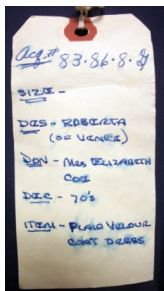 Acq.# 83.86.8.
SIZE -
DES - ROBERTA
(OF VENICE)
DON - Mrs ELIZABETH
COE
DEC - 70's
ITEM - PLAID VELOUR
COAT DRESS